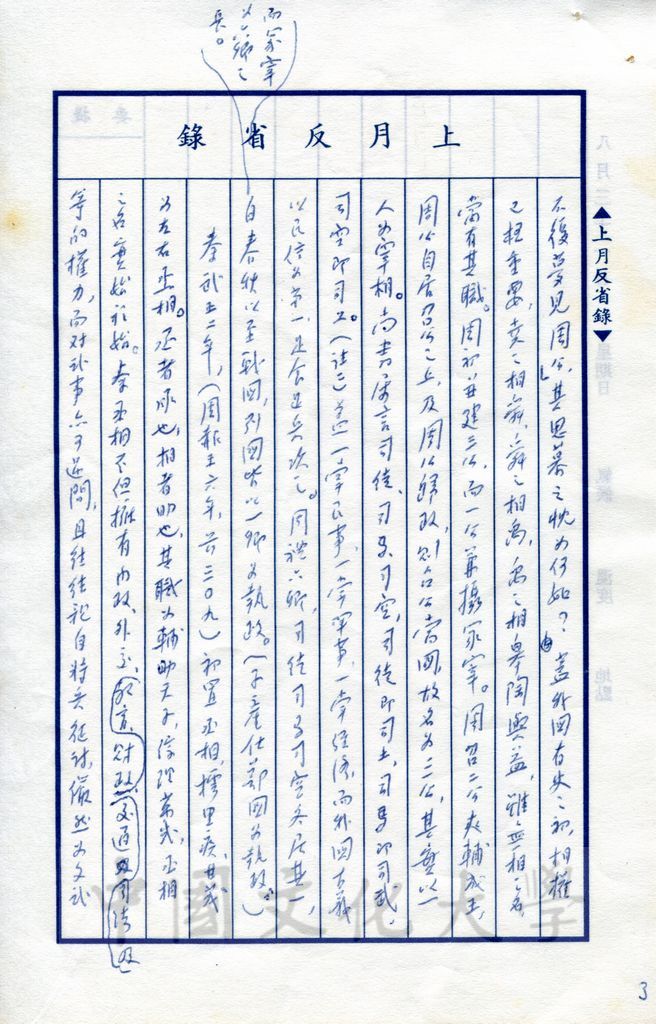 而冢宰
為六卿之
長。
上月反省錄
▲上月反省錄▼
不復夢見周公,其思慕之忱為何如?蓋我國有史之初,相權
已極重要,堯之相舜,舜之相禹,禹之相皋陶與益,雖無相之名,
當有其職。周初並建三公,而一公兼攝冢宰。周召二公夾輔成王,
周公自居召公之上,及周公歸政,則召公當國,故名為三公,其實以一
人為宰相。尚書屢言司徒、司馬、司空,司徒即司土,司馬即司武,
司空即司工。(註三)蓋一掌民事,一掌軍事,一掌經濟,而我國古義
以民信為第一,足食足兵次之。周禮六卿,司徒司馬司空各居其一,
自春秋以至戰國,列國皆以一卿為執政。(子產仕鄭國為執政)
秦武王二年,(周赧王六年,前三〇九)初置丞相,樗里疾、甘茂
為左右丞相。丞者承也,相者助也,其職為輔助天子,綜理萬幾,丞相
之名實始於始。秦丞相不但擁有內政、外交、教育、財政、交通及司法
等的權力,而對武事亦可過問,且往往親自將兵征討,儼然為文武
中國文化大學
3